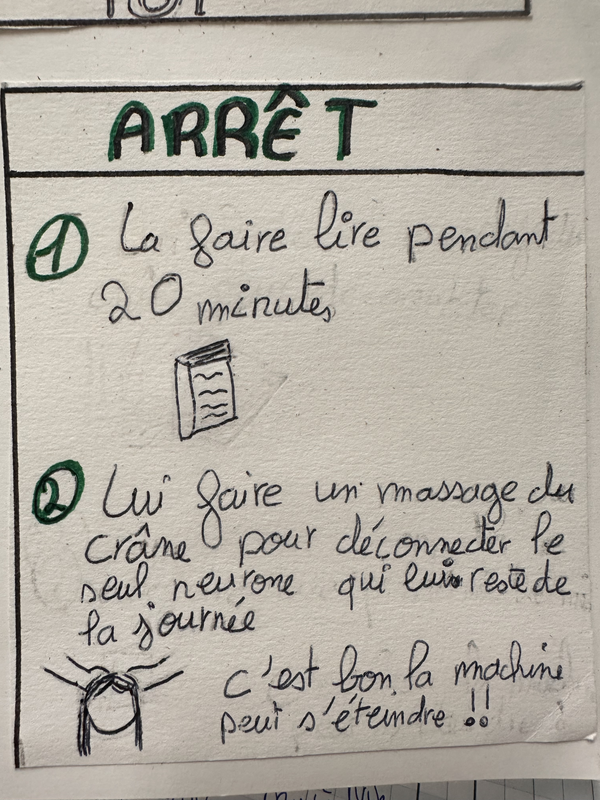 ARRÊT
1 La faire lire pendant
20 minutes
2 Lui faire un massage du
crâne pour déconnecter le
seul neurone qui lui reste de
la journée
c'est bon la machine
peut s'éteindre !!